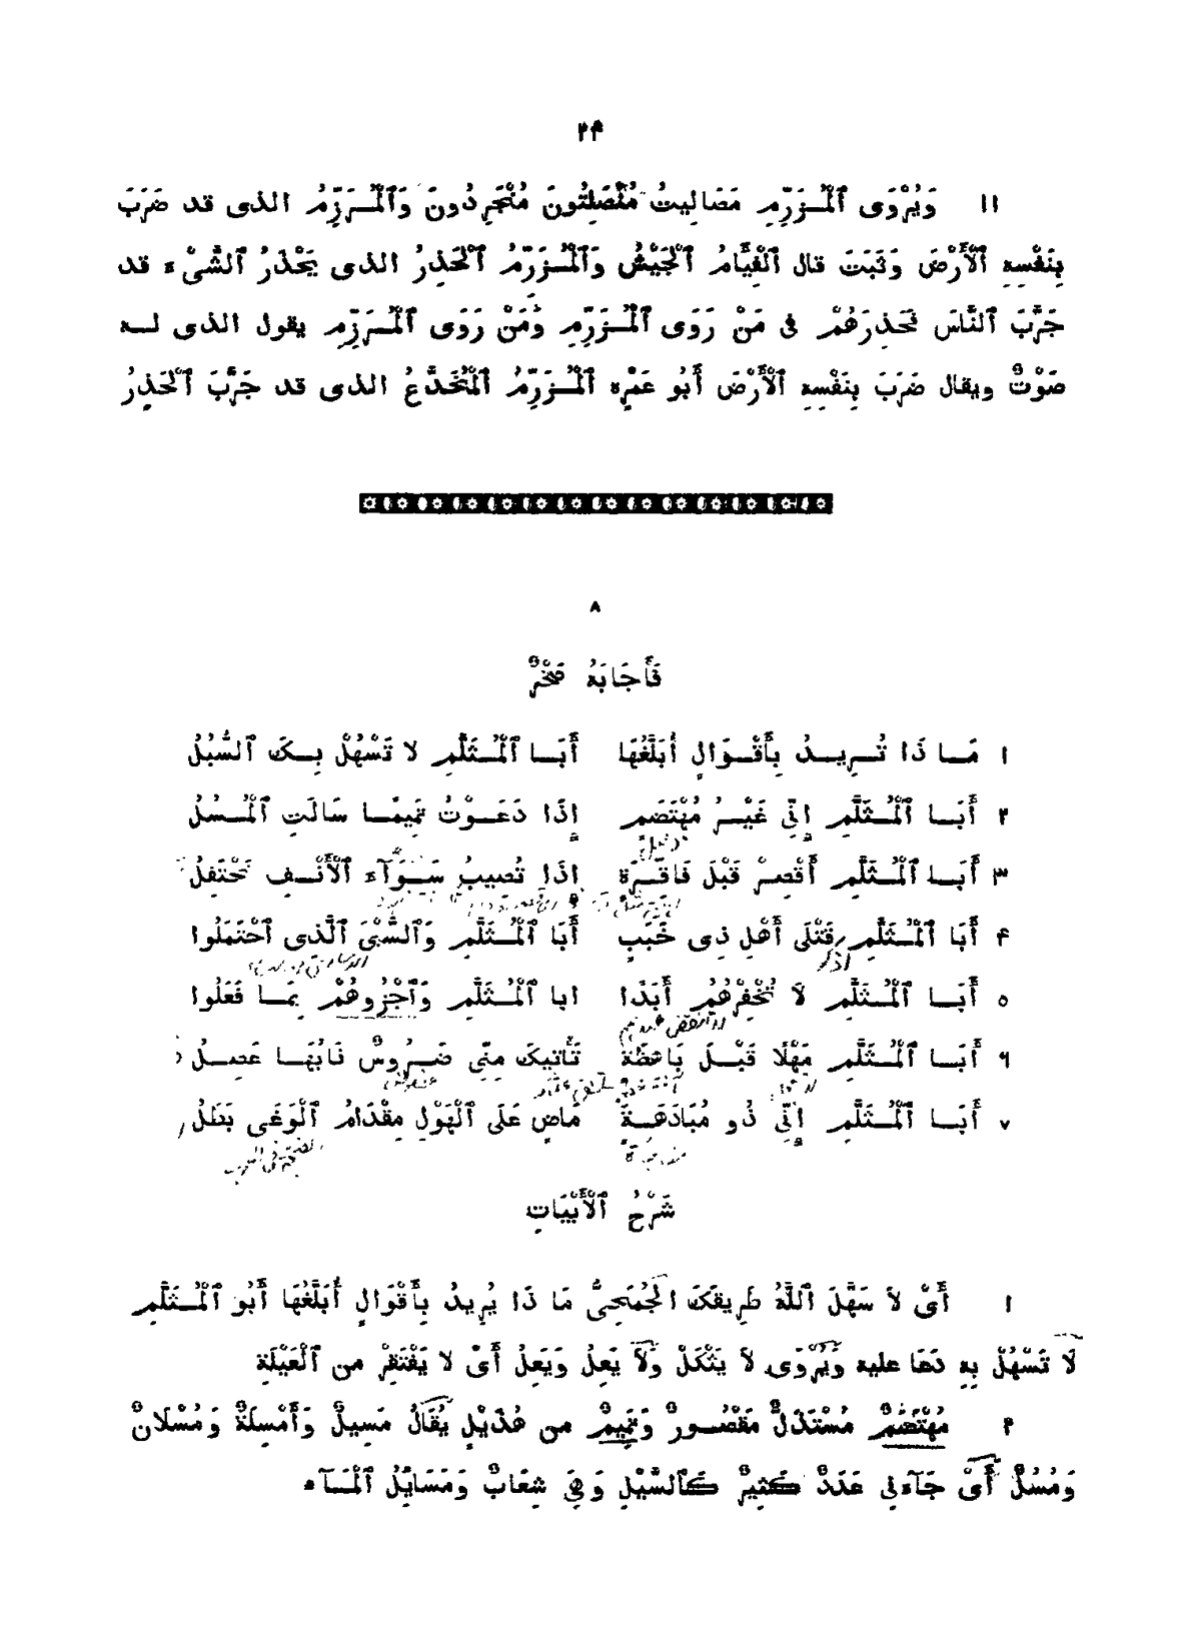 ٢٣
١١ وَيُرْوَى ٱلْمُرَزِّمِ مَصَالِيتُ مُنْصَلِتُونَ مُنْجَرِدُونَ وَٱلْمُرَزِّمُ الذى قد ضَرَبَ
بِنَفْسِهِ ٱلْأَرْضَ وَثَبَتَ قال ٱلْفِئَامُ ٱلْجَيْشُ وَٱلْمُزَرِّمُ ٱلْحَذِرُ الذى يَحْذَرُ ٱلشَّىْءَ قد
جَرَّبَ ٱلنَّاسَ فَحَذِرَهُمْ فى مَنْ رَوَى ٱلْمُزَرِّمِ وَمَنْ رَوَى ٱلْمُرَزِّمِ يقول الذى له
صَوْتٌ ويقال ضَرَبَ بِنَفْسِهِ ٱلْأَرْضَ أَبُو عَمْرٍه ٱلْمُزَرِّمُ ٱلْمُخَدَّعُ الذى قد جَرَّبَ ٱلْحَذِرُ
٨
فَأَجَابَهُ صَخْرٌ
١ مَا ذَا تُرِيدُ بِأَقْوَالٍ أُبَلَّغُهَا أَبَا ٱلْمُثَلَّمِ لا تَسْهُلْ بِكَ ٱلسُّبُلُ
٢ أَبَا ٱلْمُثَلَّمِ إِنِّى غَيْرُ مُهْتَضَمٍ إِذَا دَعَوْتُ تَمِيمًا سَالَتِ ٱلْمُسُلُ
٣ أَبَا ٱلْمُثَلَّمِ أَقْصِرْ قَبْلَ فَاقِرَةٍ إِذَا تُصِيبُ سَوَآءَ ٱلْأَنْفِ تَحْتَفِلُ
۴ أَبَا ٱلْمُثَلَّمِ قَتْلَى أَهْلِ ذِى خَبَبٍ أَبَا ٱلْمُثَلَّمِ وَٱلسَّبْىَ ٱلَّذِى ٱحْتَمَلُوا
اذكر
٥ أَبَا ٱلْمُثَلَّمِ لاَ تُخْفِرْهُمُ أَبَدًا ابا ٱلْمُثَلَّمِ وَٱجْزُوهُمْ بِمَا فَعَلُوا
٦ أَبَا ٱلْمُثَلَّمِ مَهْلًا قَبْلَ بَاهِظَةٍ تَأْتِيكَ مِنِّى ضَرُوسٌ نَابُهَا عَصِلُ
٧ أَبَا ٱلْمُثَلَّمِ إِنِّى ذُو مُبَادَهَةٍ مَاضٍ عَلَى ٱلْهَوْلِ مِقْدَامُ ٱلْوَغَى بَطَلُ
شَرْحُ ٱلْأَبْيَاتِ
١ أَىْ لاَ سَهَّلَ ٱللَّهُ طَرِيقَكَ الجُمَحِىُّ مَا ذَا يُرِيدُ بِأَقْوَالٍ أُبَلَّغُهَا أَبُو ٱلْمُثَلَّمِ
لَا تَسْهُلْ بِهِ دَعَا عليه وَيُرْوَى لاَ يَثْكَلْ وَلاَ يَعِلْ وَيَعِلُ أَىْ لا يَفْتَقِرْ من ٱلْعَيْلَةِ
٢ مُهْتَضَمٌ مُسْتَذَلٌّ مَقْصُورٌ وَتَمِيمٌ من هُذَيْلٍ يُقَالُ مَسِيلٌ وَأَمْسِلَةٌ وَمُسْلَانٌ
وَمُسُلٌ أَىْ جَآءَنِى عَدَدٌ كَثِيرٌ كَٱلسَّيْلِ وَهِىَ شِعَابٌ وَمَسَايِلُ ٱلْمَآءِ